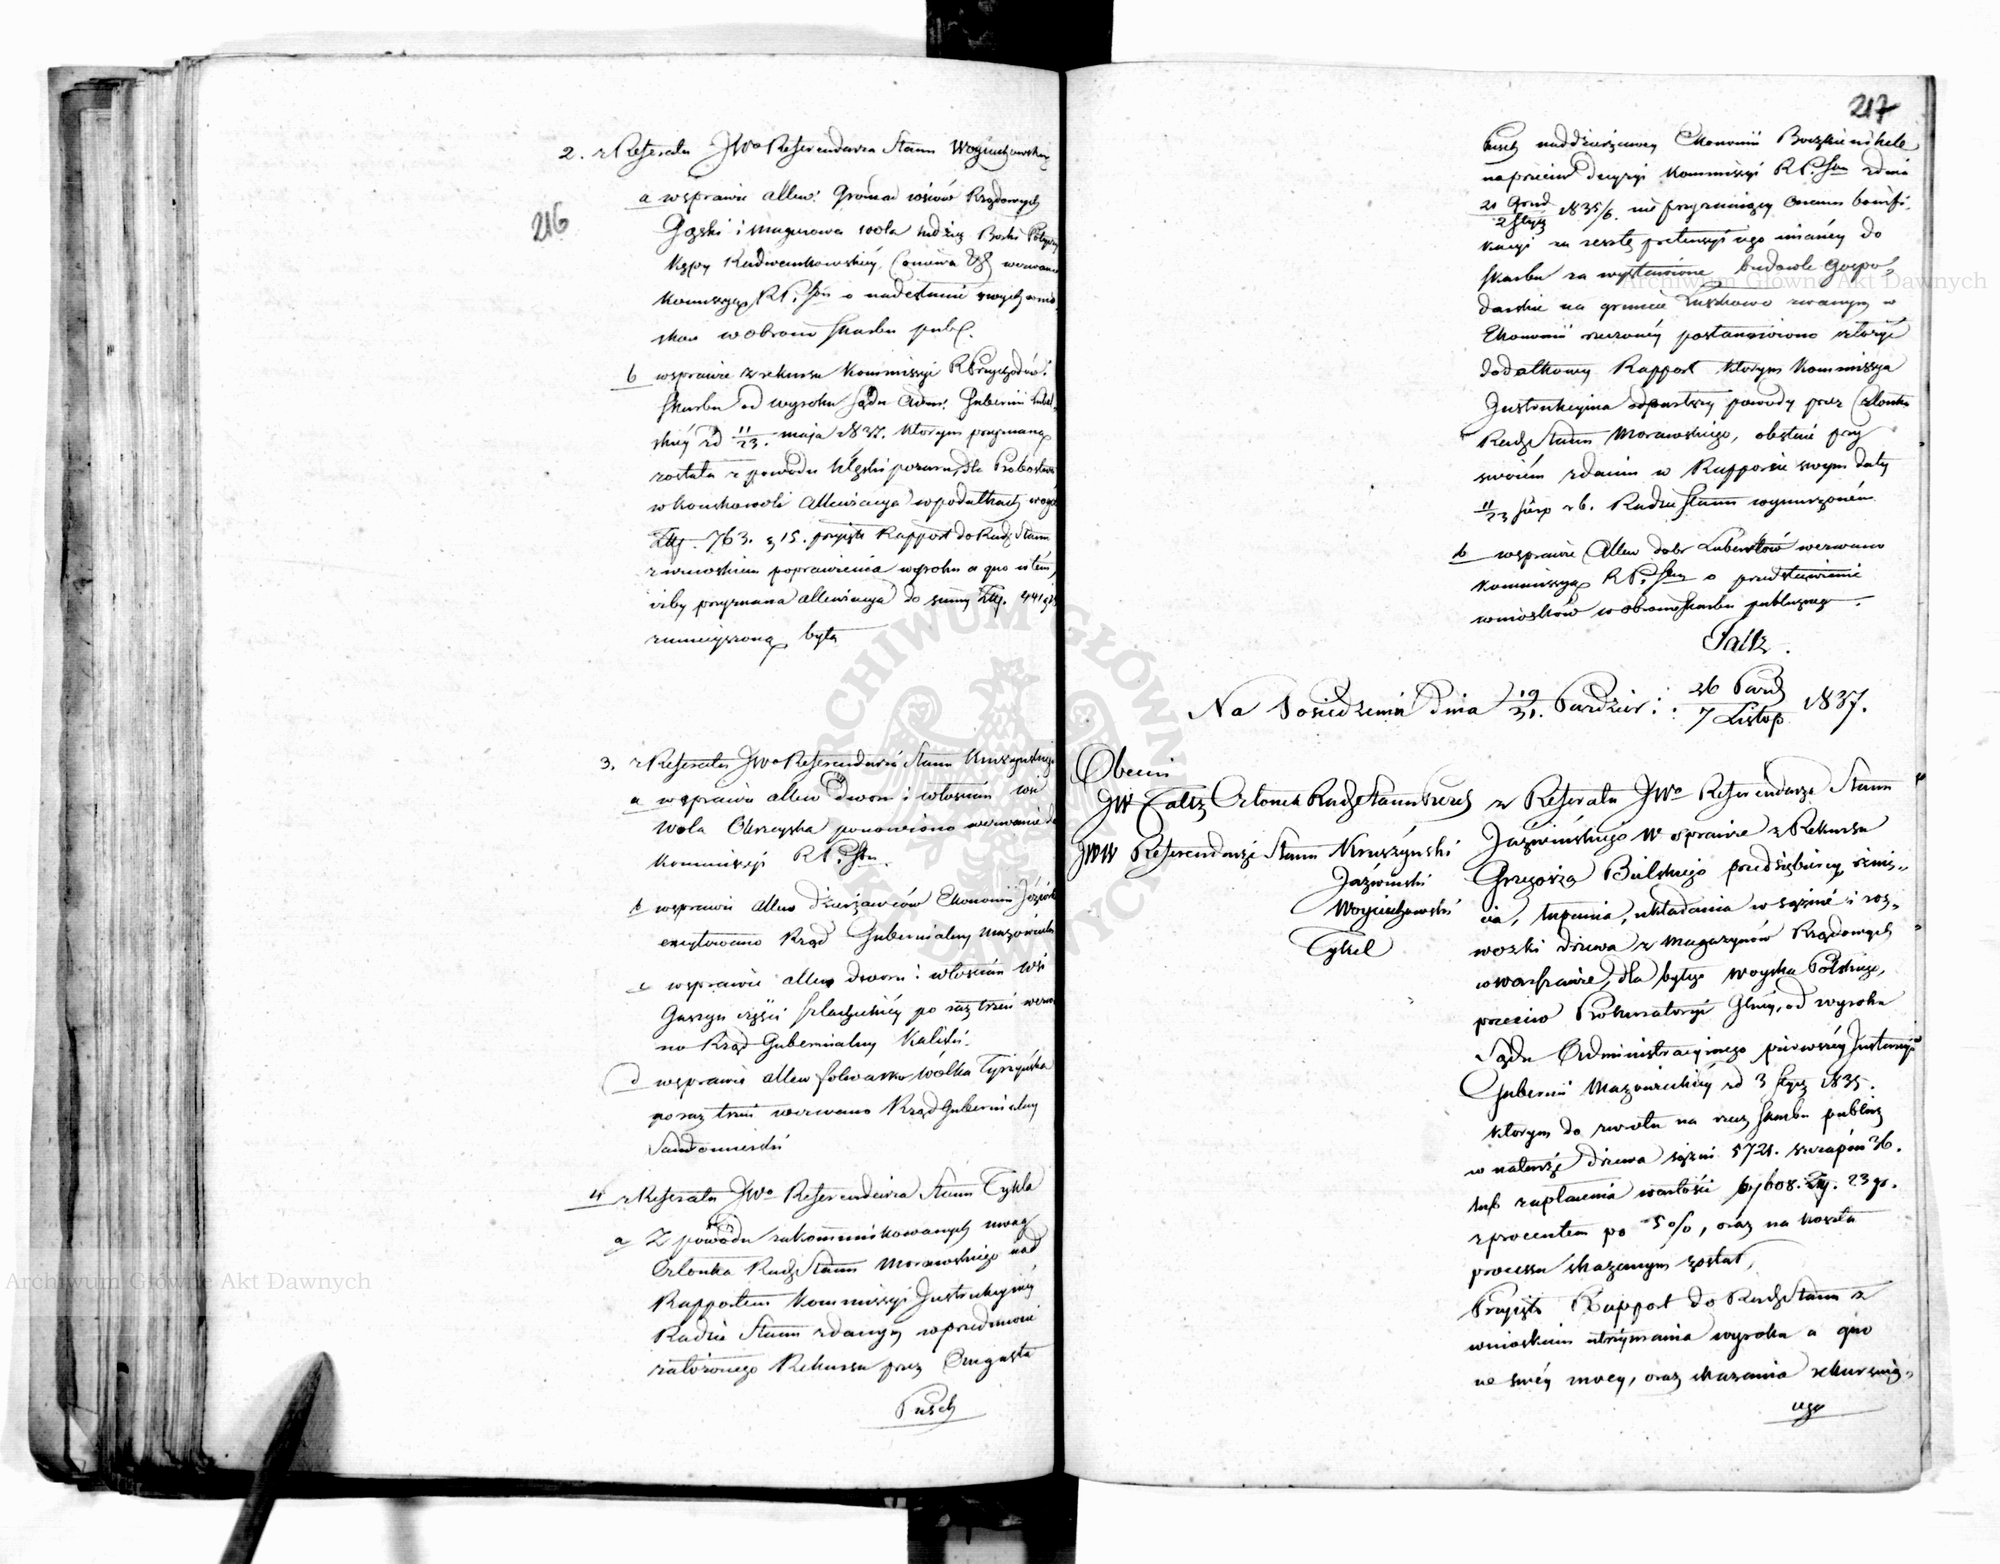 216
2. z Referatu JWo Referendarza Stanu Wojciechowskiego
a w sprawie allew: Gromad wsiów Rządowych
Gąski i Magierowa wola tudzież Boski
Kępy Radwankowskiéy, wezwano
Kommissyą R P. i Sbu o nadesłanie swych wnio
sków w obronie skarbu publ.
b w sprawie z rekursu Kommissyi R Przychodów i
Skarbu od wyroku Sądu Adm: Gubernii Lubel
skiéy z d 11/23. maja 1837. którym przyznaną
została z powodu klęski pożaru, dla Probostwa
w Końskowoli allewiacya w podatkach w ogóle
Złp. 763. g 15. przyjęto Rapport do Rady Stanu
z wnioskiem poprawienia wyroku a quo w tém,
iżby przyznana allewiacya do summy Złp. 441
zmnieyszoną była
3. z Referatu JWo Referendarza Stanu Kruszyńskiego
a w sprawie allew dworu i włościan wsi
Wola Okrzeyska ponowiono wezwanie do
Kommissyi R P. i Sbu.
b w sprawie allew dzierżawców Ekonomii
excytowano Rząd Gubernialny Mazowiecki
c w sprawie allew dworu i włościan wsi
Gaszyn części szlacheckiéy po raz trzeci wezwa
no Rząd Gubernialny Kaliski.
d w sprawie allew folwarku Wólka Tyrzyńska
po raz trzeci wezwano Rząd Gubernialny
Sandomierski
4 z Referatu JWo Referendarza Stanu Tykla
a Z powodu zakommunikowanych uwag
Członka Rady Stanu Morawskiego nad
Rapportem Kommissyi Instrukcyinéy
Radzie Stanu zdanym w przedmiocie
założonego Rekursu przez Augusta
Pusch
217
Pusch naddzierżawcy Ekonomii
naprzeciw decyzyi Kommissyi R P. i Sbu z dnia
21 Grud/2 Stycz 1835/6. nie przyznaiącey onemu bonifi
kacyi za resztę pretensyi iego mianéy do
skarbu za wystawione budowle Gospo-
darskie na gruncie zwanym w
Ekonomii rzeczonéy postanowiono złożyć
dodatkowy Rapport którym Kommissya
Instrukcyina odparłszy powody przez Członka
Rady Stanu Morawskiego, obstaie przy
swoiém zdaniu w Rapporcie swym daty
11/23 Sierp r b. Radzie Stanu wynurzoném
b w sprawie Allew dobr Lubartów wezwano
Kommissyą R P. i Sbu o przedstawienie
wniosków w obronie skarbu publicznego.
Faltz.
Na Posiedzeniu dnia 19/31. Paździer: i 26 Paźd/7 Listop 1837.
Obecni
JW Faltz Członek Rady Stanu Prezes
JWW Referendarze Stanu Kruszyński
Jaźwiński
Wojciechowski
Tykel
z Referatu JWo Referendarza Stanu
Jaźwińskiego w sprawie z Rekursu
Grzegorza Bielskiego przedsiębiercy
cia, łupania, układania w sążnie i roz-
wozki drzewa z magazynów Rządowych
w Warszawie, dla byłego woyska Polskiego,
przeciw Prokuratoryi Glnéy, od wyroku
Sądu Administracyinego pierwszéy Instancyi
Gubernii Mazowieckiéy z d 3 Stycz 1835.
którym do zwrotu na rzecz skarbu publicz
w naturze drzewa sążni 5721. szczapów 36.
lub zapłacenia wartości 69608. Złp. 23 gr.
z procentem po 5 o/o, oraz na koszta
processu skazanym został,
Przyjęto Rapport do Rady Stanu z
wnioskiem utrzymania wyroku a quo
we swéy mocy, oraz skazania rekursuią-
cego